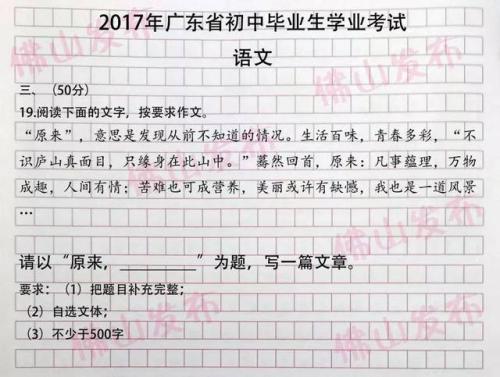 2017年广东省初中毕业生学业考试
语文
三、（50分）
19.阅读下面的文字，按要求作文。
“原来”，意思是发现从前不知道的情况。生活百味，青春多彩，“不
识庐山真面目，只缘身在此山中。”蓦然回首，原来：凡事蕴理，万物
成趣，人间有情；苦难也可成营养，美丽或许有缺憾，我也是一道风景
…
请以“原来，__________”为题，写一篇文章。
要求：（1）把题目补充完整；
（2）自选文体；
（3）不少于500字
佛山发布
佛山发布
佛山发布
佛山发布
佛山发布